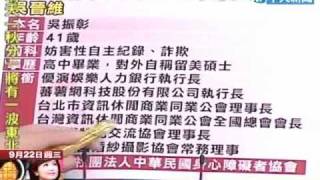 中天新聞
吳晉維
本名 吳振彰
年齡 41歲
分科 妨害性自主紀錄、詐欺
學歷 高中畢業，對外自稱留美碩士
優演娛樂人力銀行執行長
蕃薯網科技股份有限公司執行長
台北市資訊休閒商業同業公會理事長
台灣資訊休閒商業同業公會全國總會會長
交流協會理事長
婚紗攝影協會常務理事
團法人中華民國身心障礙者協會
秋
將有一波東北
9月22日週三